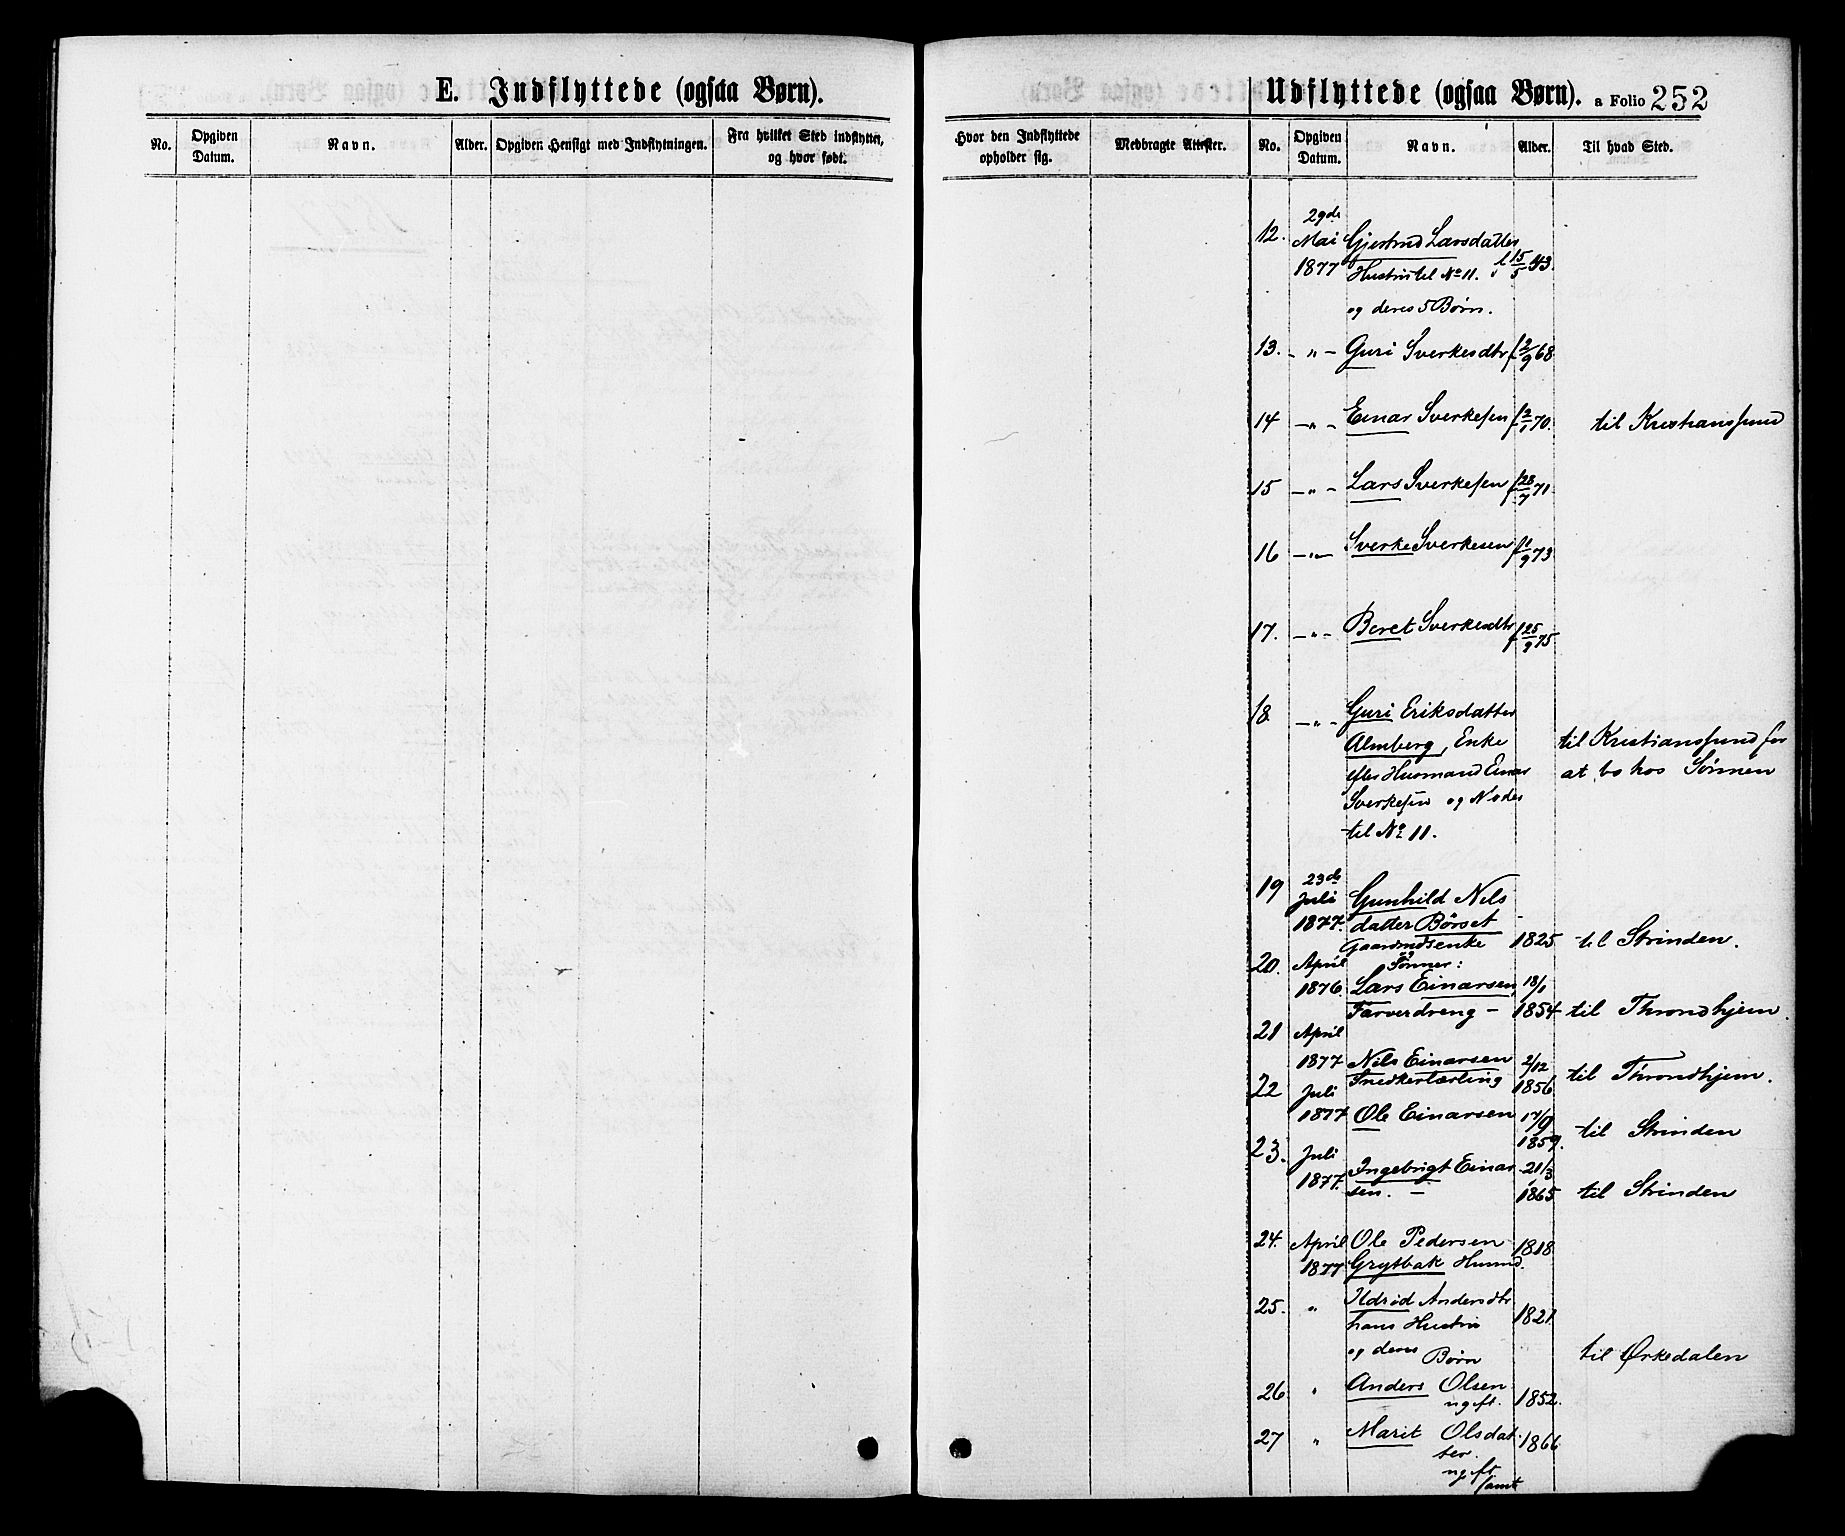 E. Indflyttede (ogsaa Børn).
No.
Opgiven Datum.
Navn.
Alder.
Opgiven Hensigt med Indflytningen.
Fra hvilket Sted indflyttet, og hvor født.
Udflyttede (ogsaa Børn). a Folio 252
Hvor den Indflyttede opholder sig.
Medbragte Attester.
No.
Opgiven Datum.
Navn.
Alder.
Til hvad Sted.
29de
12. Mai Gjertrud Larsdatter
1877 Hustru til No 11. f 15/5 43.
og deres 5 Børn.
13. - " - Guri Sverkesdtr f 2/9 68
14 - " - Einar Sverkesen f 2/1 70. til Kristianssund
15 - " - Lars Sverkesen f 28/7 71
16 - " - Sverke Sverkesen f 1/9 73
17. - " - Beret Sverkesdtr f 25/9 75
18 - " - Guri Eriksdatter
Almberg, Enke til Kristianssund for
efter Husmand Einar at bo hos Sönnen
Sverkesen og Moder
til No 11.
23de
19 Juli Gunhild Nils
1877. datter Börset
Gaardmdsenke 1825 til Strinden.
20. April og Sönner:
1876. Lars Einarsen, 18/1
Farverdreng - 1854 til Throndhjem.
21 April
1877 Nils Einarsen 2/12
Snedkerlærling 1856 til Throndhjem.
22 Juli
1877 Ole Einarsen 17/9
1859. til Strinden
23. Juli
1877. Ingebrigt Einar 21/3
sen. - 1865 til Strinden
24. April Ole Pedersen 1818
1877 Grytbak Husmd.
25. " Ildrid Andersdtr
hans Hustru 1821
og deres Børn til Ørkedalen
26 " Anders Olsen
ugift. 1852.
27 " Marit Olsdat
ter. 1866
ugift
samt